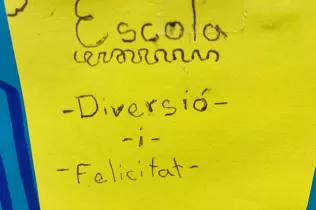 Escola
-Diversió-
-i-
-Felicitat-